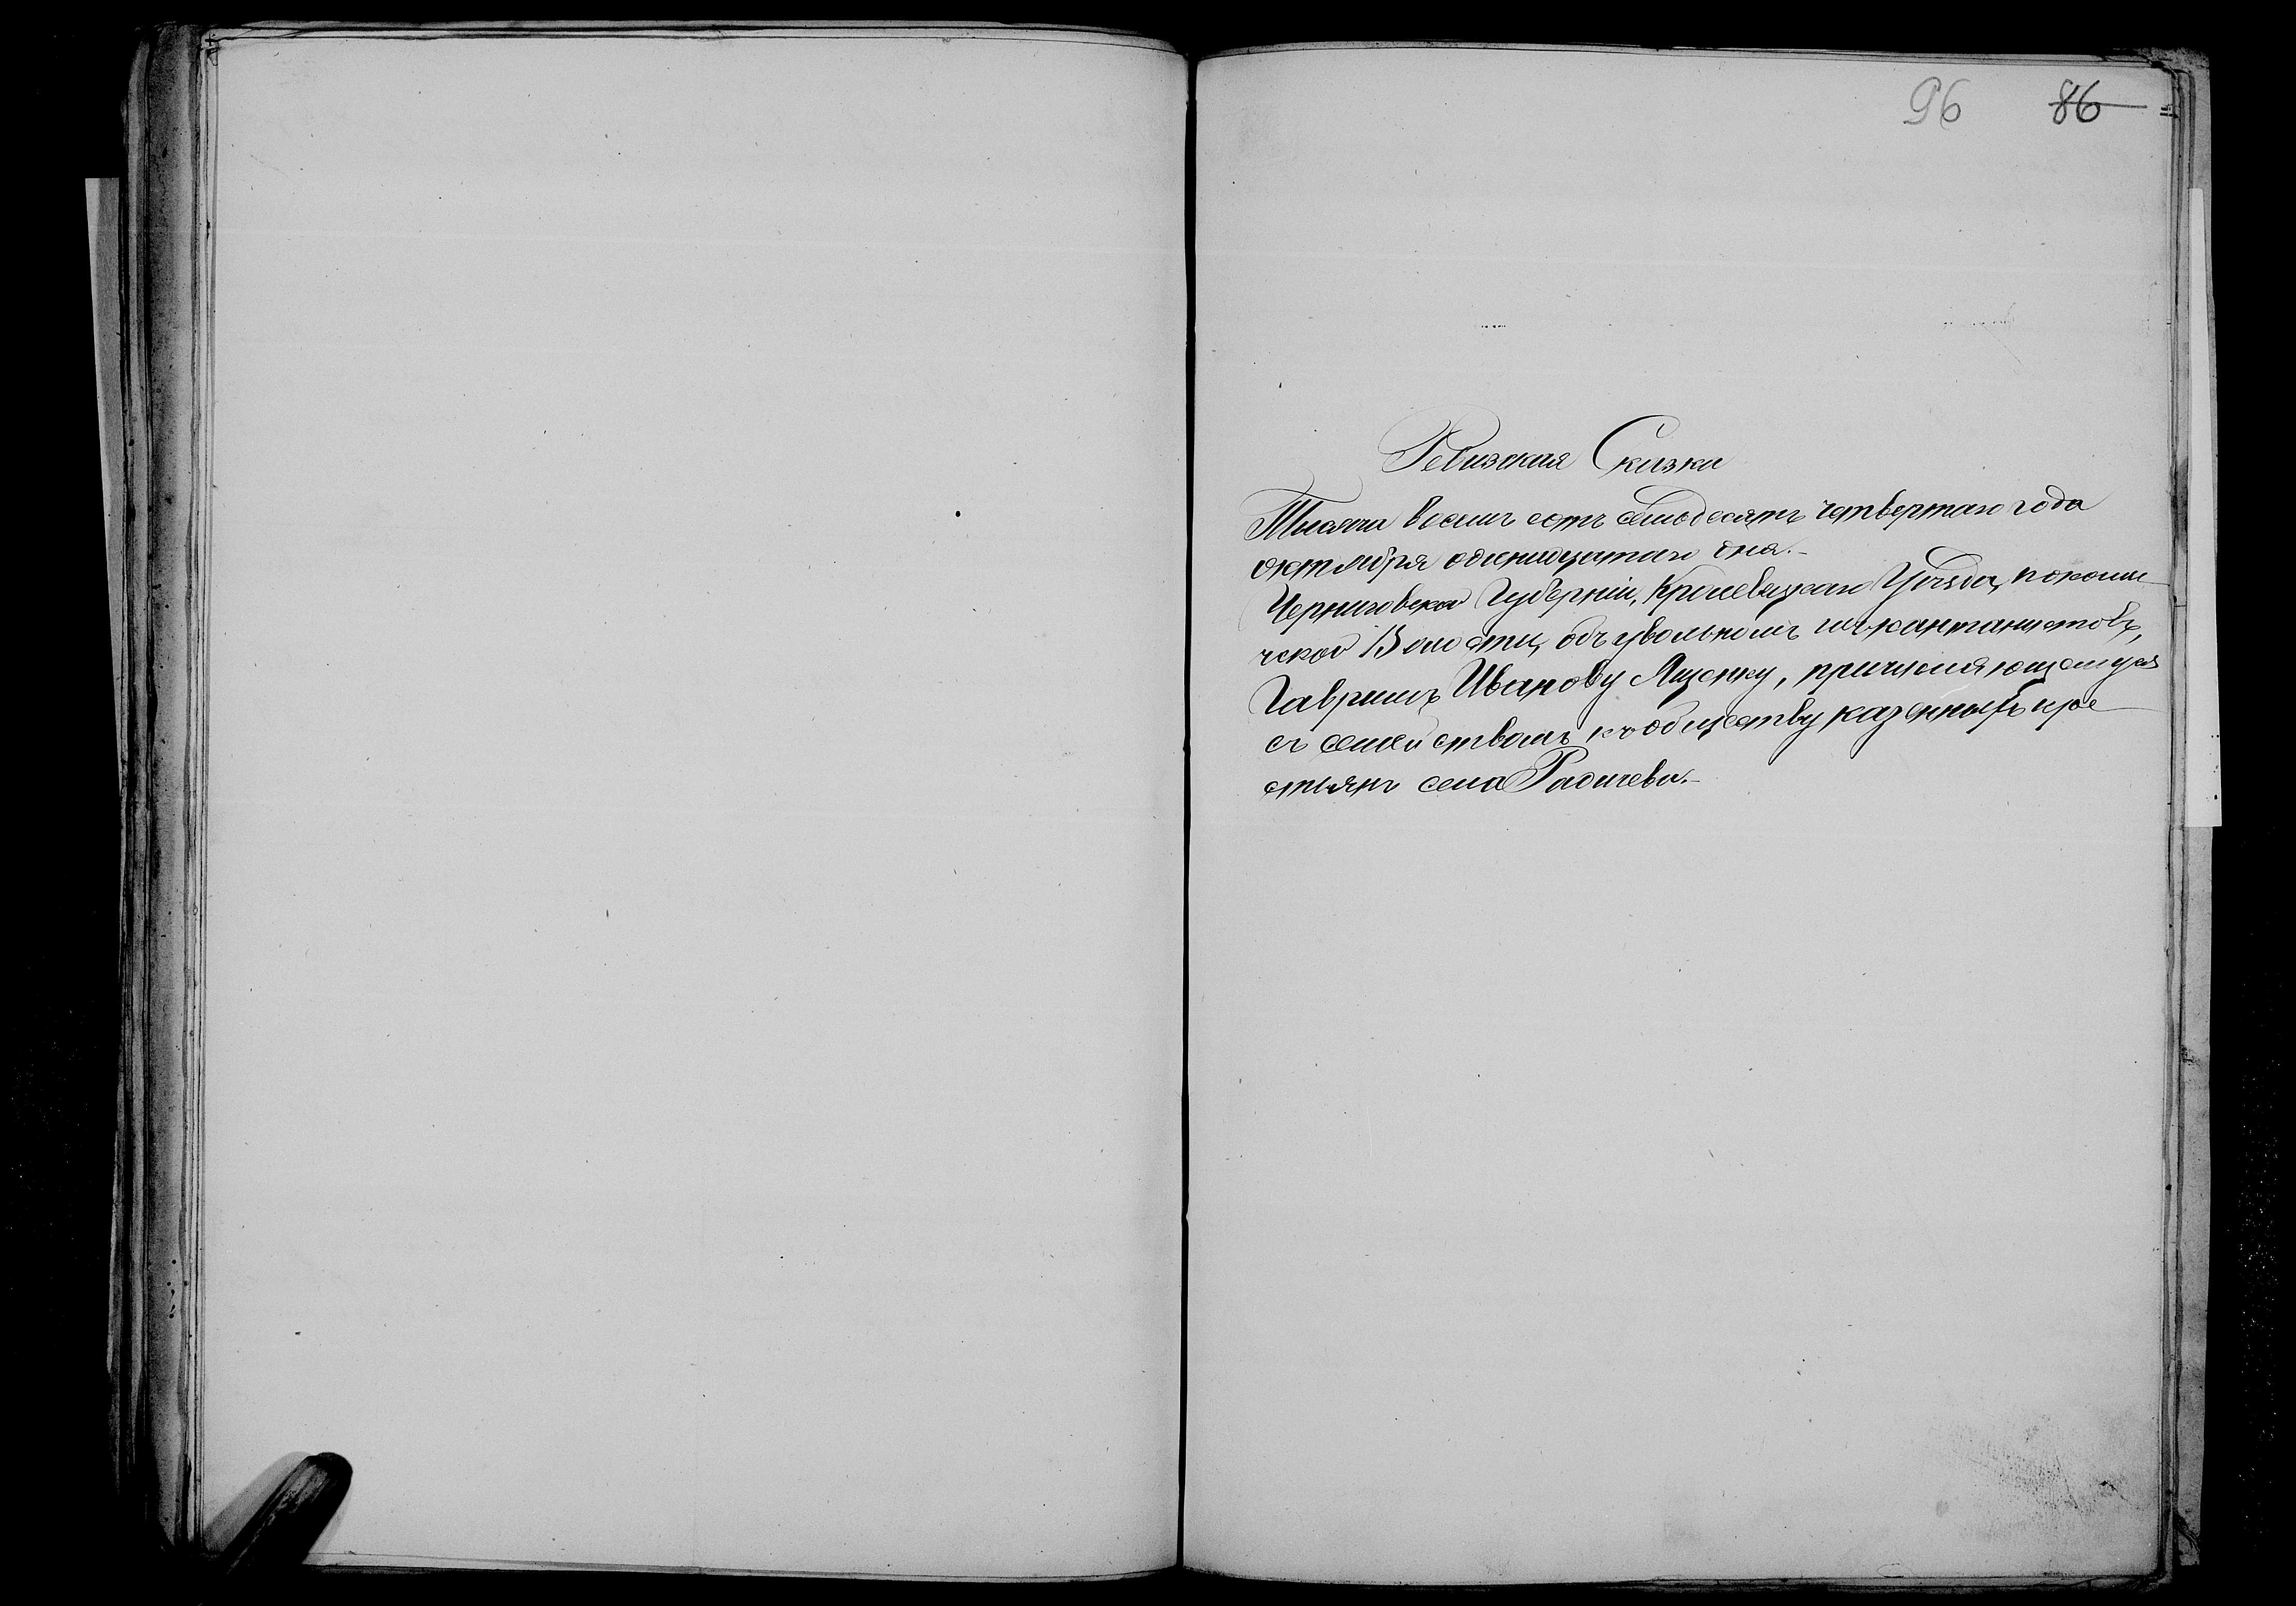 96 86
Ревизская Сказка
Тысяча восемь сотъ семьдесятъ четвертаго года
октября одинадцатаго дня.-
Черниговской Губерніи, Кролевецкаго Уѣзда, Покоши
чской Волости, объ увольномъ изъ кантанистовъ,
Гавриилъ Иванову Ященку, причисляющемуся
съ семействомъ къ обществу казенныхъ кре
стьянъ села Радичева.-